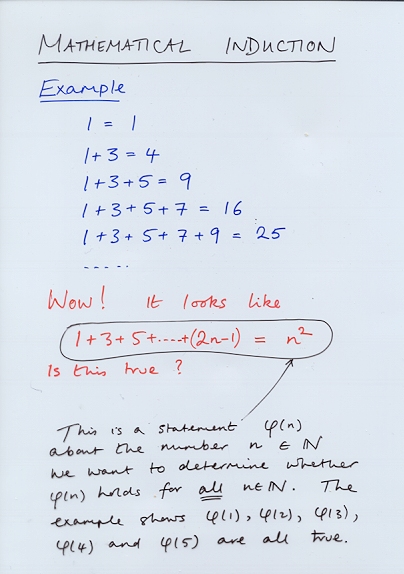 MATHEMATICAL INDUCTION
Example
1 = 1
1+3 = 4
1+3+5 = 9
1+3+5+7 = 16
1+3+5+7+9 = 25
.....
Wow! It looks like
1+3+5+....+(2n-1) = n²
Is this true?
This is a statement φ(n)
about the number n ∈ ℕ
we want to determine whether
φ(n) holds for all n∈ℕ. The
example shows φ(1), φ(2), φ(3),
φ(4) and φ(5) are all true.